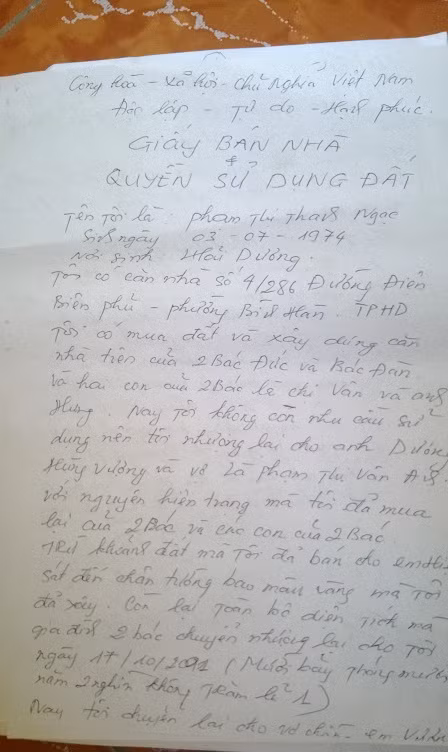 Công hoà - xã hôi - chủ nghĩa Việt Nam
Đôc lâp - Tử do - Hạnh phúc.
GIẤY BÁN NHÀ
&
QUYỀN SỬ DUNG ĐẤT
Tên Tôi là: phạm Thị Thanh Ngọc
Sinh ngày 03 - 07 - 1974
Nơi sinh Hải Dương.
Tôi có căn nhà số 4/286 Đường Điện
Biên phủ - phường Bình Hàn. TPHD
Tôi có mua đất và xây dưng căn
nhà trên của 2 Bác Đức và Bác Đan
và hai con của 2 Bác là chị Vân và anh
Hưng. Nay tôi không còn nhu cầu sử
dung nên tôi nhương lại cho anh Dương
Hưng Vương và vơ là phạm Thị Vân Anh
với nguyên hiện trạng mà tôi đã mua
lại của 2 Bác và các con của 2 Bác
Trừ khoảng đất mà Tôi đã bán cho em
sát đến chân tường bao màu vàng mà Tôi
đã xây. Còn lại toàn bô diện tích mà
gia đình 2 bác chuyển nhương lại cho tôi
ngày 17/10/2001 (Mười bảy Tháng mười
năm 2 nghìn không Trăm lẻ 1)
Nay tôi chuyển lại cho vơ chồng em